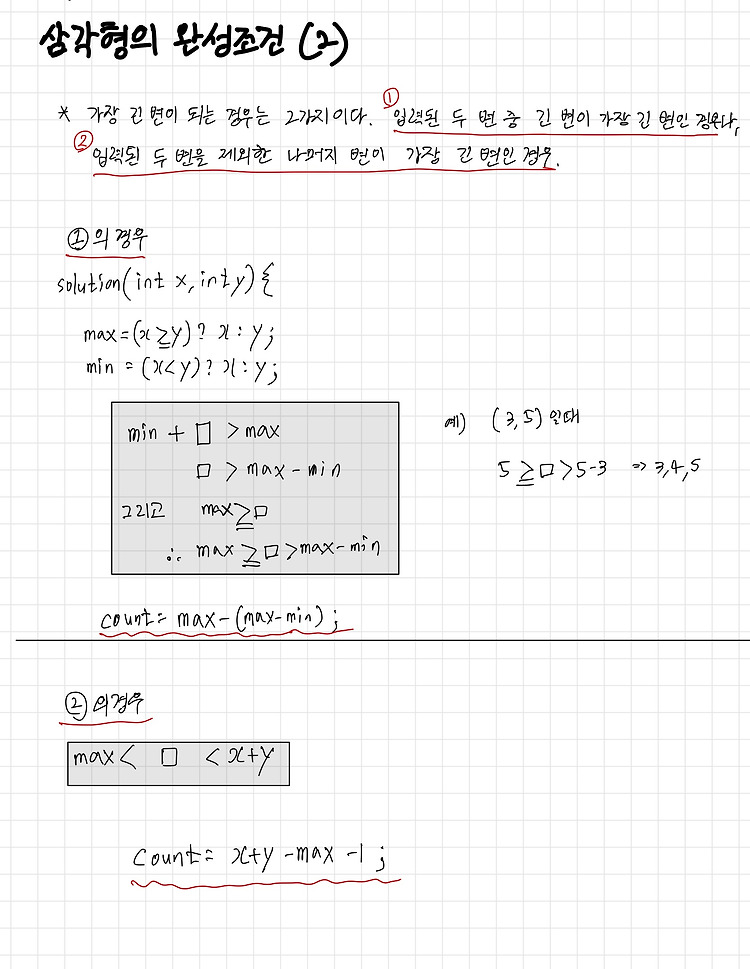 삼각형의 완성조건 (2)
* 가장 긴 변이 되는 경우는 2가지이다. ① 입력된 두 변 중 긴 변이 가장 긴 변인 경우나,
② 입력된 두 변을 제외한 나머지 변이 가장 긴 변인 경우.
①의 경우
solution(int x, int y) {
max = (x ≥ y) ? x : y ;
min = (x < y) ? x : y ;
min + □ > max
□ > max - min
그리고 max ≥ □
∴ max ≥ □ > max - min
예) (3, 5) 일때
5 ≥ □ > 5-3 => 3,4,5
count = max - (max - min) ;
②의 경우
max < □ < x+y
count = x+y - max - 1 ;